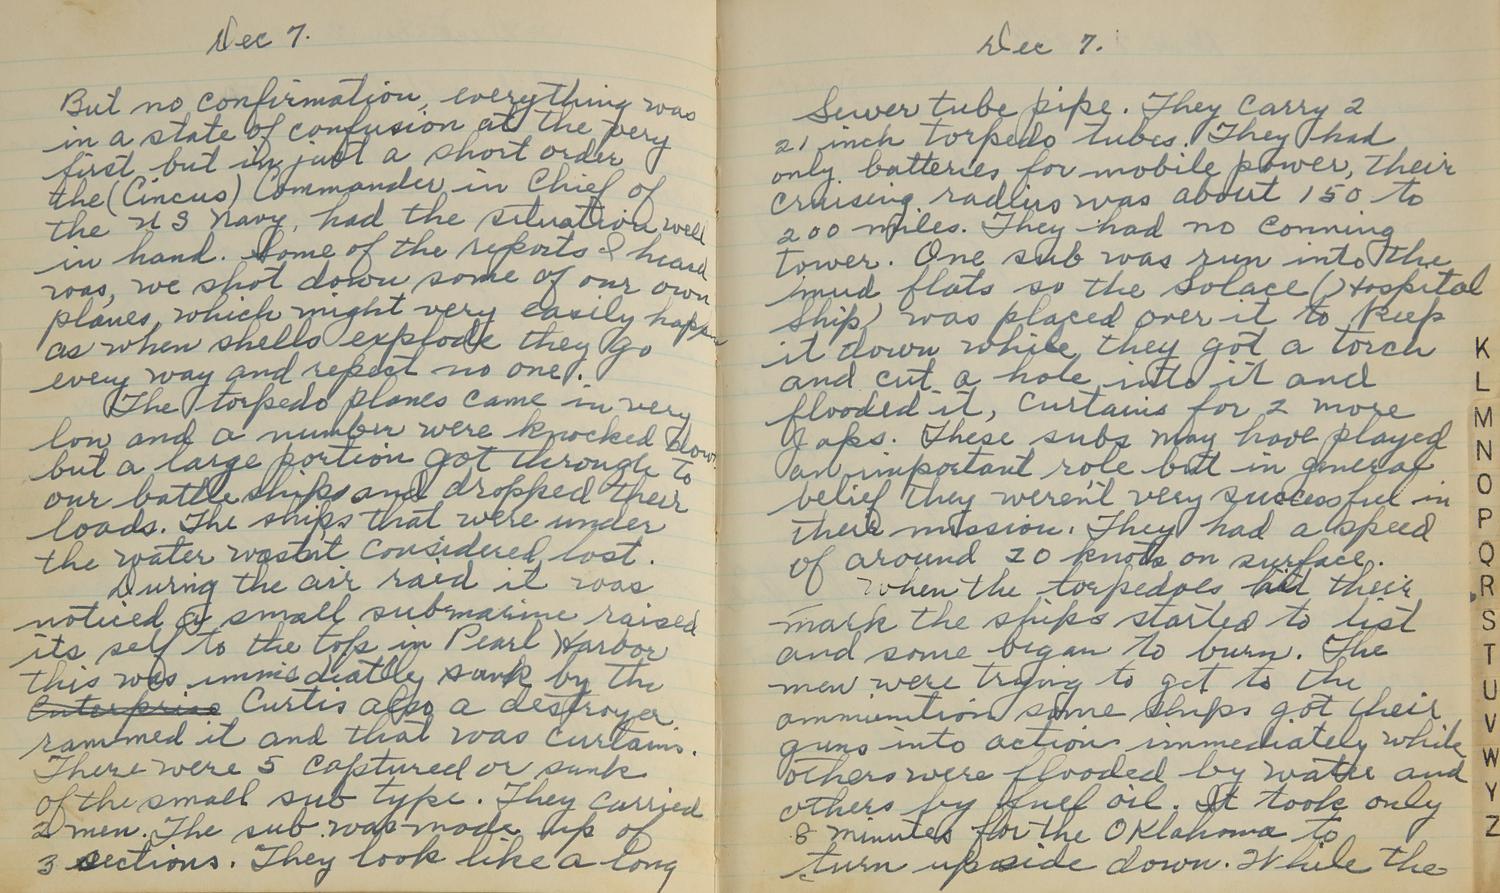 Dec 7.
But no confirmation, everything was
in a state of confusion at the very
first, but in just a short order
the (Cincus) Commander in Chief of
the U S Navy, had the situation well
in hand. Some of the reports I heard
was, we shot down some of our own
planes, which might very easily happen
as when shells explode they go
every way and respect no one.
The torpedo planes came in very
low and a number were knocked down
but a large portion got through to
our battle ships and dropped their
loads. The ships that were under
the water wasn't considered lost.
During the air raid it was
noticed a small submarine raised
its self to the top in Pearl Harbor
this was immediatly sunk by the
Enterprise Curtis also a destroyer
rammed it and that was curtains.
There were 5 captured or sunk
of the small sub type. They carried
2 men. The sub was made up of
3 sections. They look like a long
Dec 7.
Sewer tube pipe. They carry 2
21 inch torpedo tubes. They had
only batteries for mobile power, their
cruising radius was about 150 to
200 miles. They had no conning
tower. One sub was run into the
mud flats so the Solace () Hospital
Ship) was placed over it to keep
it down while they got a torch
and cut a hole into it and
flooded it, Curtains for 2 more
Japs. These subs may have played
an important role but in general
belief they weren't very successful in
their mission. They had a speed
of around 20 knots on surface.
When the torpedoes hit their
mark the ships started to list
and some began to burn. The
men were trying to get to the
ammunition some ships got their
guns into action immediately while
others were flooded by water and
others by fuel oil. It took only
8 minutes for the Oklahoma to
turn upside down. While the
K
L
M
N
O
P
Q
R
S
T
U
V
W
Y
Z